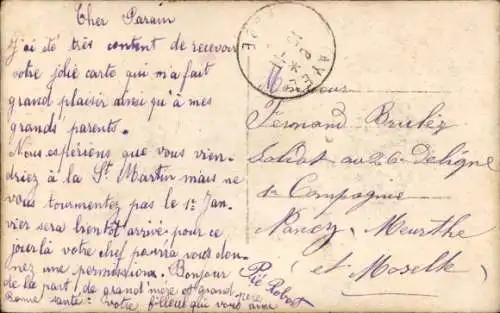 Cher Parain
J'ai été très content de recevoir
votre jolie carte qui m'a fait
grand plaisir ainsi qu'à mes
grands parents.
Nous espérions que vous vien-
driez à la St Martin mais ne
vous tourmentez pas le 1er Jan-
vier sera bientôt arrivé pour ce
jour là votre chef pourra vous don-
nez une permission. Bonjour
de la part de grand'mère et grand père
Bonne santé: votre filleul qui vous aime
Pié Robert
Monsieur
Fernand
Soldat au 26e de ligne
Compagnie
Nancy Meurthe
et Moselle